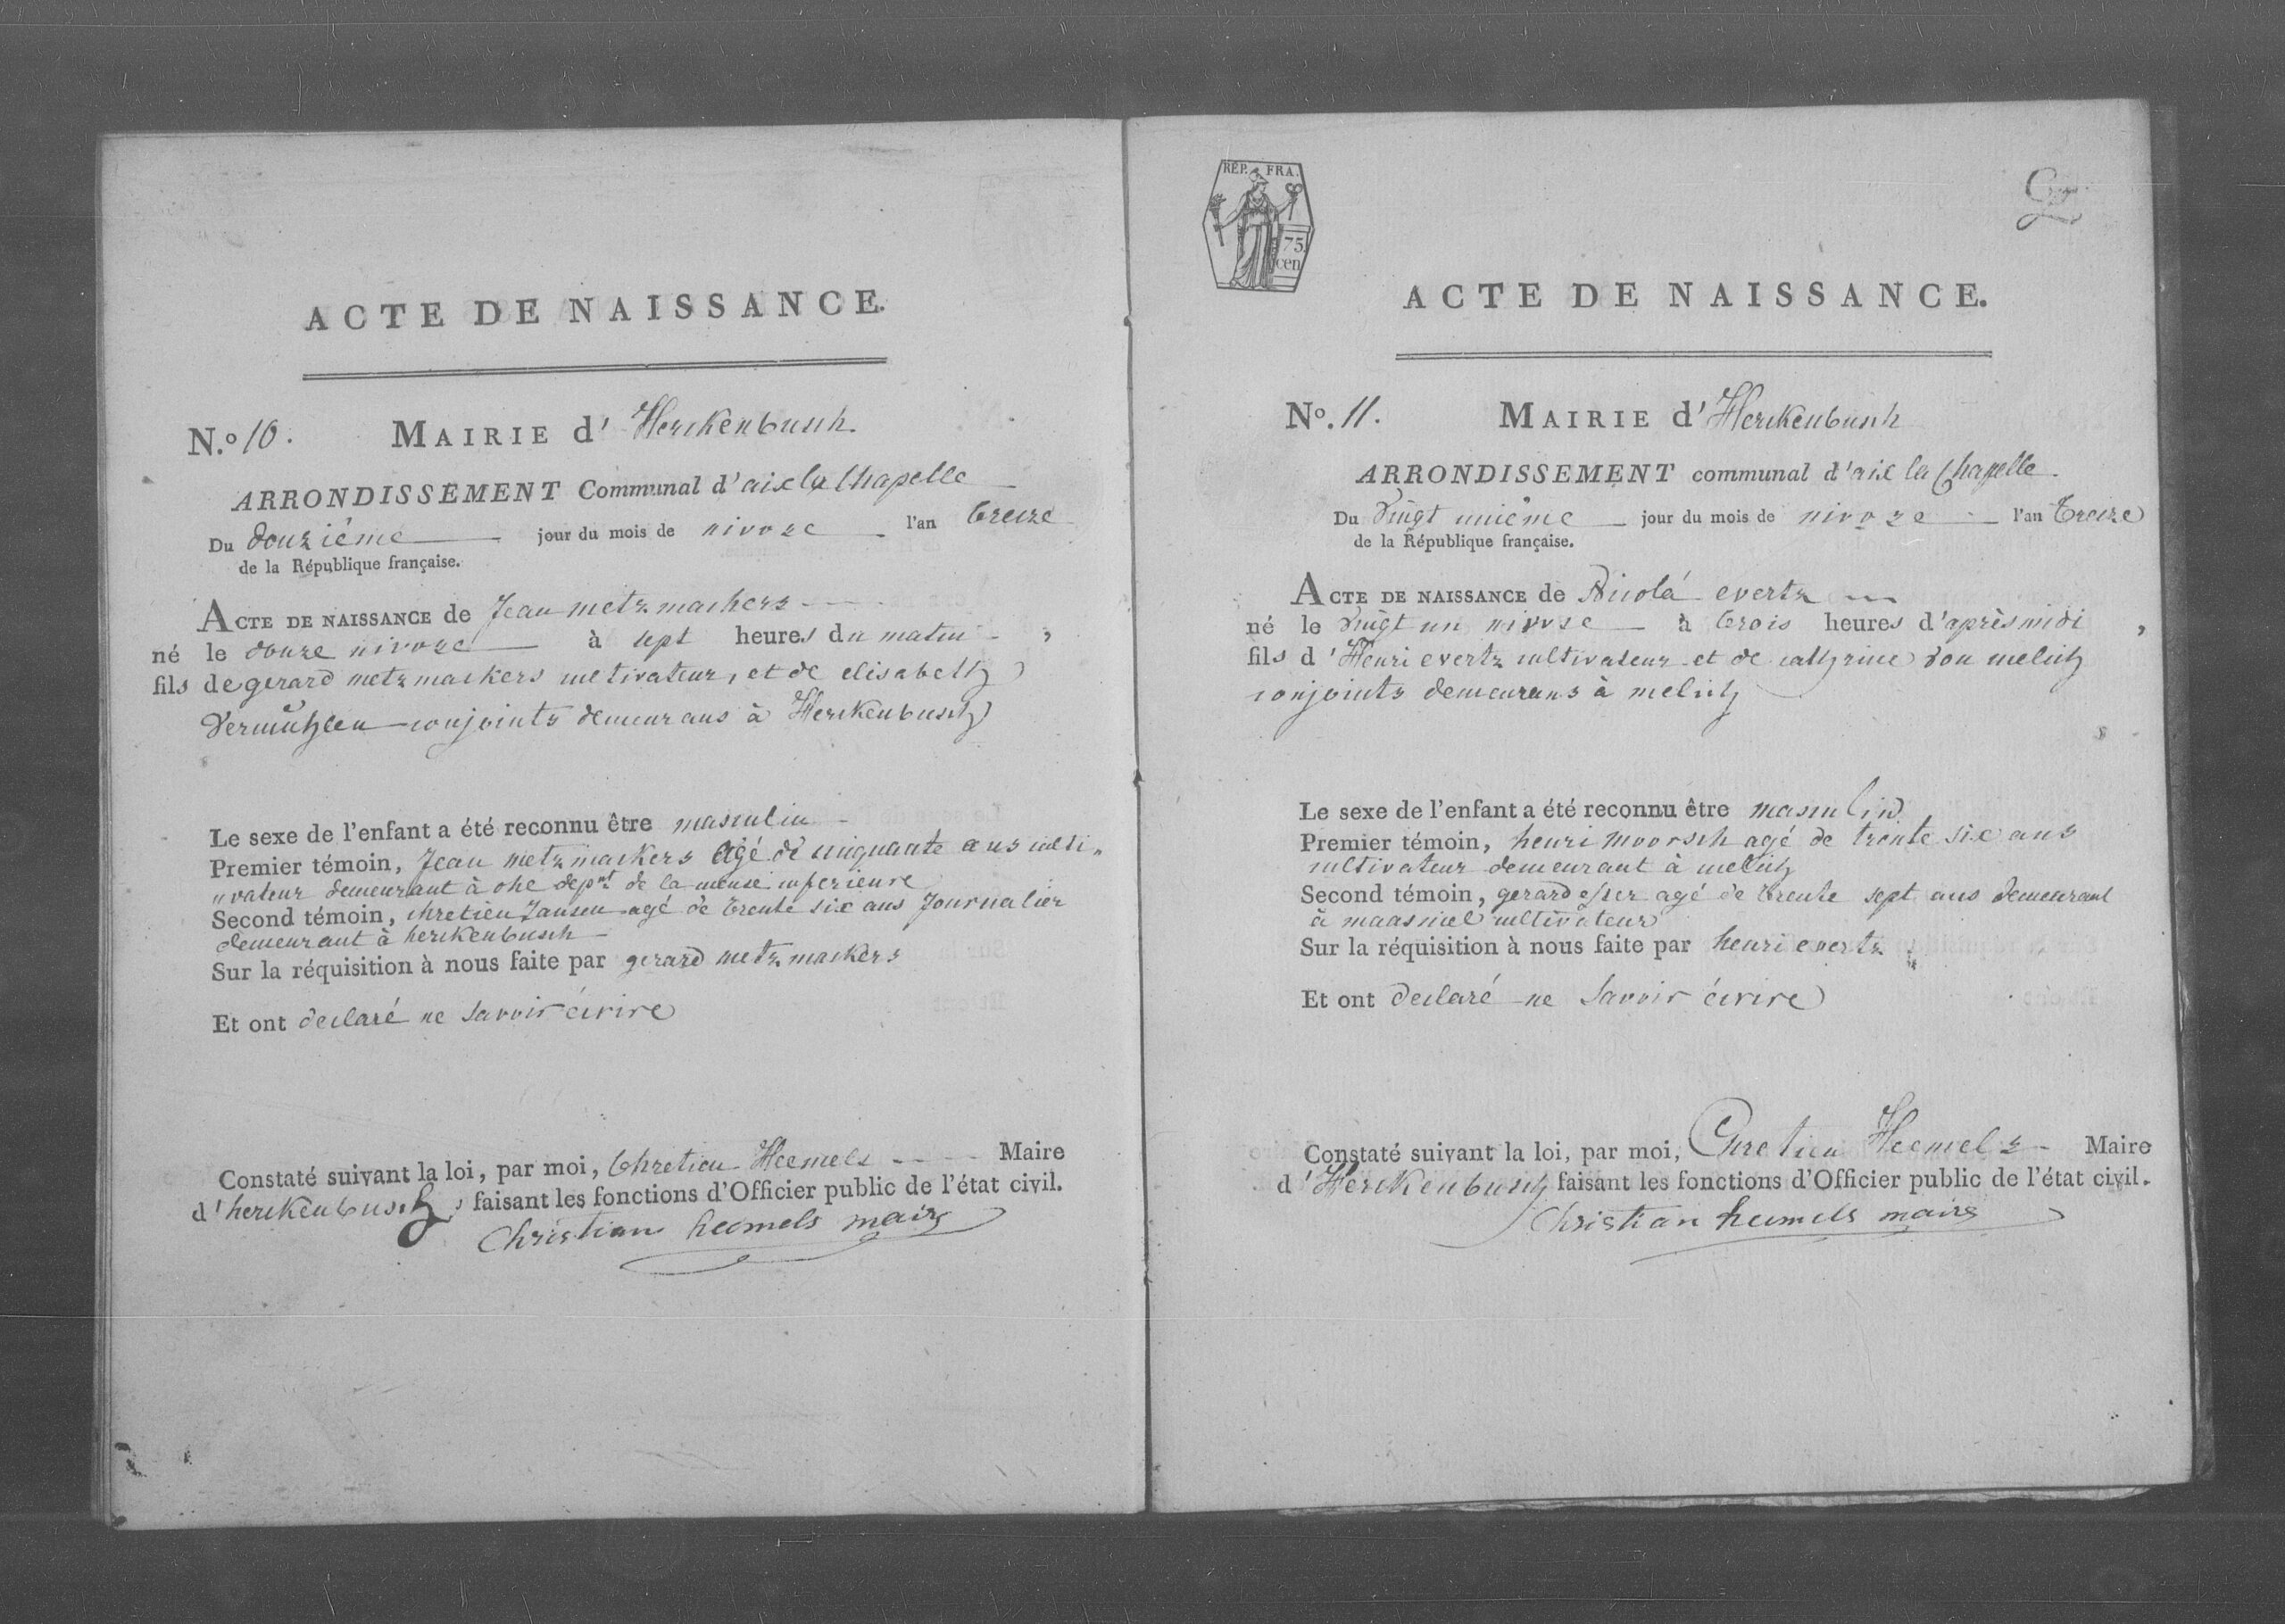 ACTE DE NAISSANCE.
N.o 10. MAIRIE d' Herckenbusch.
ARRONDISSEMENT Communal d' aix la Chapelle
Du douzième jour du mois de nivoze l'an treize
de la République française.
ACTE DE NAISSANCE de Jean metzmackers
né le douze nivoze à sept heures du matin ,
fils de gerard metzmackers cultivateur, et de elisabeth
Vermühlen conjoints demeurans à Herckenbusch
Le sexe de l'enfant a été reconnu être masculin
Premier témoin, Jean metzmackers agé de cinquante ans culti„
„vateur demeurant à ohe depnt de la meuse inferieure
Second témoin, chretien Jansen agé de trente six ans Journalier
demeurant à herckenbusch
Sur la réquisition à nous faite par gerard metzmackers
Et ont declaré ne savoir écrire
Constaté suivant la loi, par moi, Chretien Heemels Maire
d' herckenbusch, faisant les fonctions d'Officier public de l'état civil.
Christian heemels maire
RÉP. FRA.
75.
cen
ACTE DE NAISSANCE.
No. 11. MAIRIE d' Herckenbusch
ARRONDISSEMENT communal d'aix la Chapelle.
Du vingt unième jour du mois de nivoze l'an treize
de la République française.
ACTE DE NAISSANCE de Nicola evertz
né le vingt un nivose à trois heures d'après midi ,
fils d' Henri evertz cultivateur et de cathrine von melich
conjoints demeurans à melich
Le sexe de l'enfant a été reconnu être masculin
Premier témoin, henri moorsch agé de trente six ans
cultivateur demeurant à melich
Second témoin, gerard esser agé de trente sept ans demeurant
à maasniel cultivateur
Sur la réquisition à nous faite par henri evertz
Et ont declaré ne savoir écrire
Constaté suivant la loi, par moi, Chretien Heemels Maire
d' Herckenbusch faisant les fonctions d'Officier public de l'état civil.
Christian heemels maire